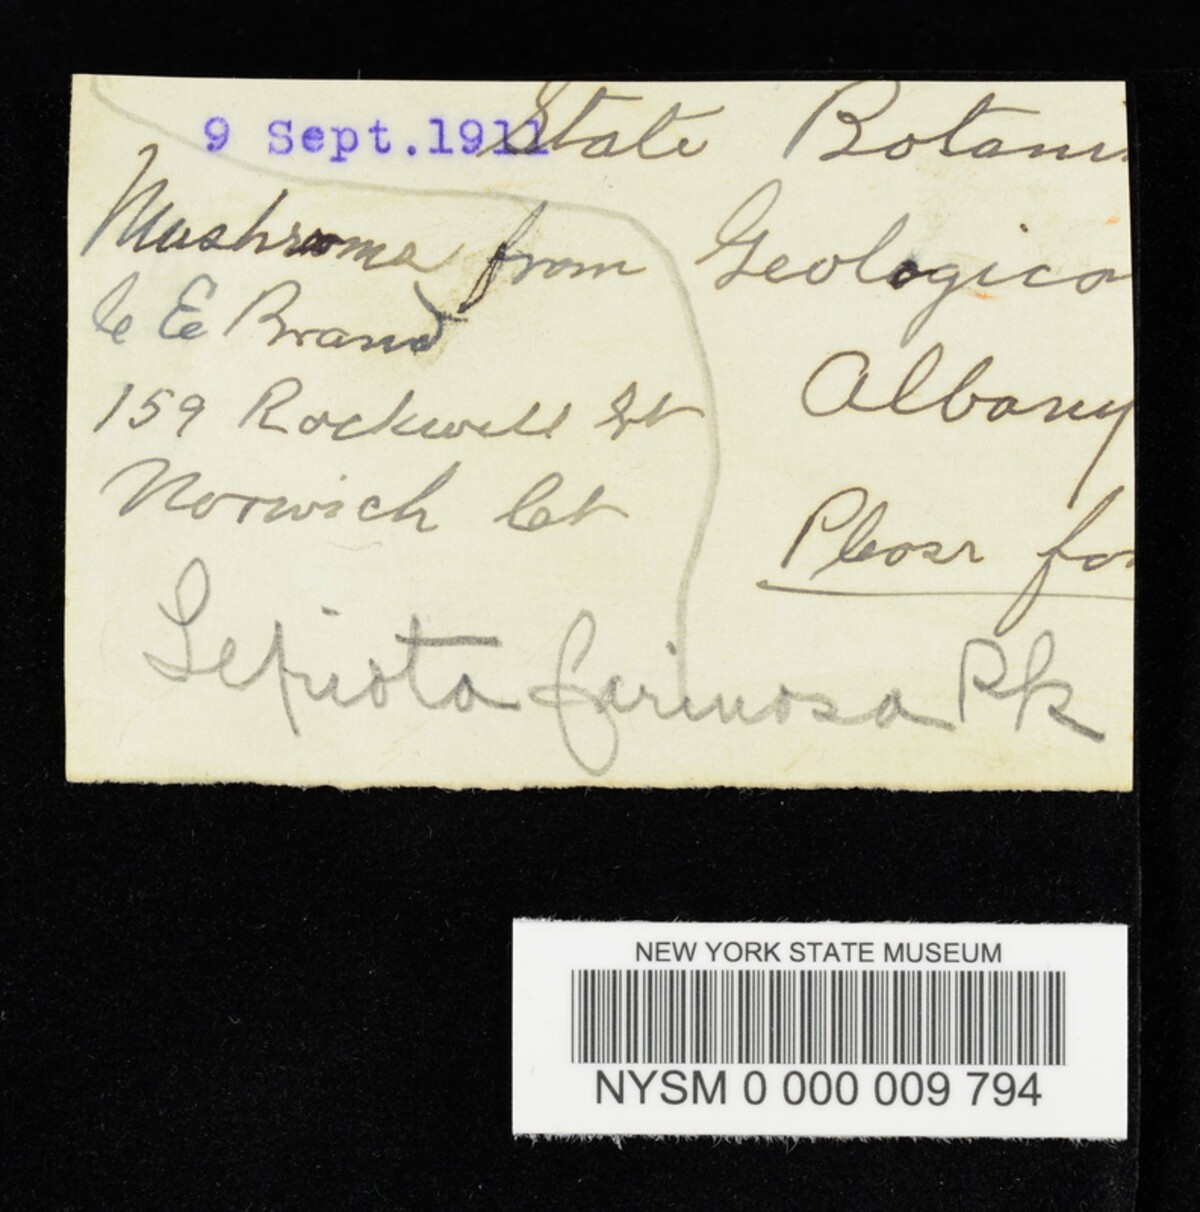 9 Sept.1911
State Botani
Mushrooms from
Geologica
C E Brand
159 Rockwell St
Albany
Norwich Ct
Pleasr for
Lepiota farinosa Pk
NEW YORK STATE MUSEUM
NYSM 0 000 009 794